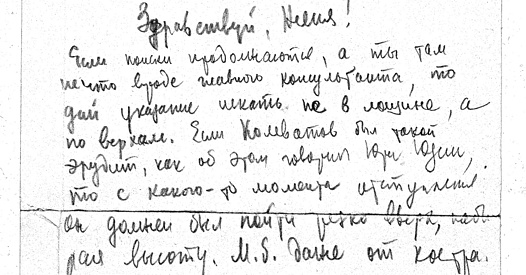 Здравствуй, Женя!
Если поиски продолжаются, а ты там
нечто вроде главного консультанта, то
дай указание искать не в лощине, а
по верхам. Если Колеватов был такой
эрудит, как об этом говорил Юра Юдин,
то с какого-то момента отступления
он должен был пойти резко вверх, наби
рая высоту. М.б. даже от костра.